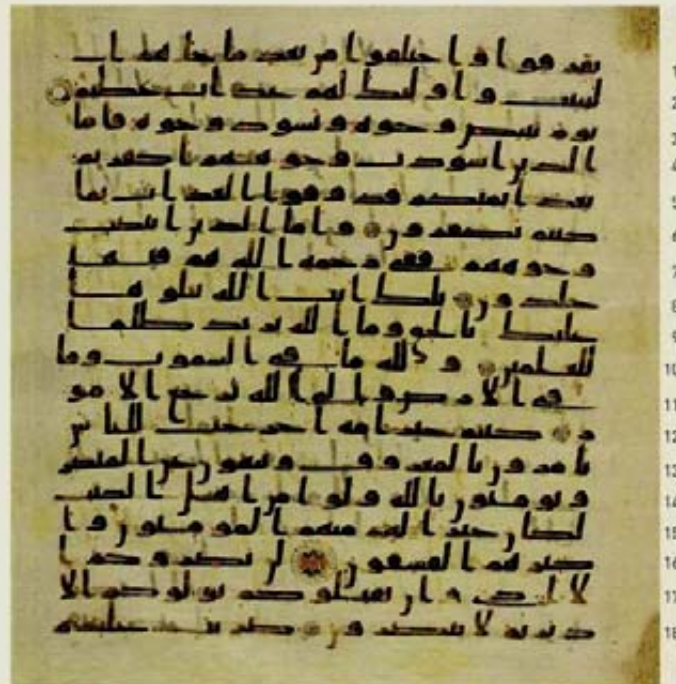 تفرقوا واختلفوا من بعد ما جاهم ا 1
لبينت واولئك لهم عذاب عظيم 2
يوم تبيض وجوه وتسود وجوه فاما 3
الذين اسودت وجوههم اكفرتم 4
بعد ايمنكم فذوقوا العذاب بما 5
كنتم تكفرون واما الذين ابيضت 6
وجوههم ففي رحمه الله هم فيها 7
خلدون تلك ايت الله نتلوها 8
عليك بالحق وما الله يريد ظلما 9
للعلمين ولله ما في السموت وما 10
في الارض والى الله ترجع الامو 11
ر كنتم خير امه اخرجت للناس 12
تامرون بالمعروف وتنهون عن المنكر 13
وتومنون بالله ولو امن اهل الكتب 14
لكان خيرا لهم منهم المومنون وا 15
كثرهم الفسقون لن يضروكم ا 16
لا اذى وان يقتلوكم يولوكم الا 17
دبر ثم لا ينصرون ضربت عليهم 18